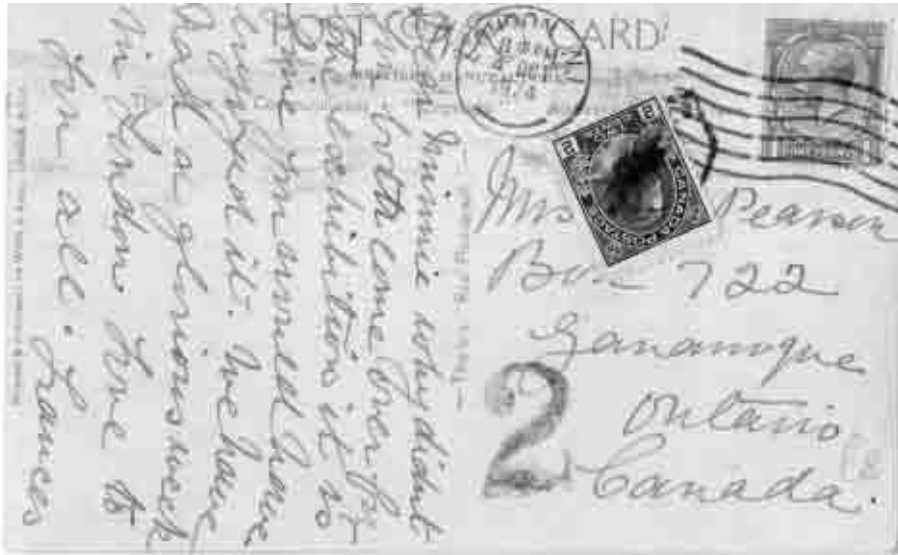 POST CARD
LONDON. N.1
1924
CANADA POSTAGE
2 2
Mrs Pearson
Box 722
Gananoque
Ontario
Canada.
2
Minnie why didnt
both come over for
the exhibition it is
fine you would have
enjoyed it. We have
had a glorious week
in London. Love to
you all. Frances